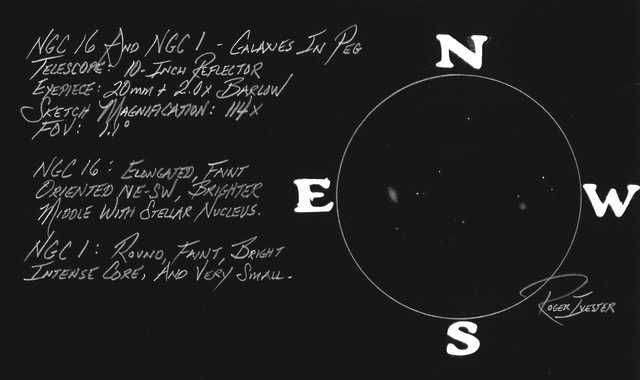 NGC 16 And NGC 1 - Galaxies In Peg
Telescope: 10-Inch Reflector
Eyepiece: 20mm + 2.0x Barlow
Sketch Magnification: 114x
FOV:
NGC 16: Elongated, Faint
Oriented NE-SW, Brighter
Middle With Stellar Nucleus.
NGC 1: Round, Faint, Bright
Intense Core, And Very Small.
N
E
W
S
Roger Ivester